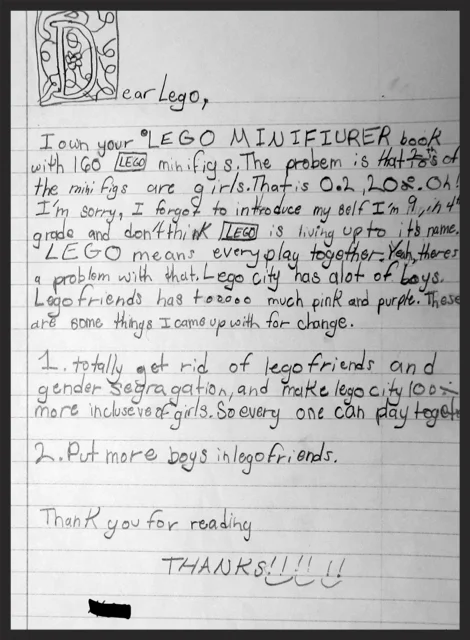 Dear Lego,
I own your LEGO MINIFIURER book
with 160 LEGO minifigs. The probem is that of
the mini figs are girls. That is 0.2, 20%. Oh!
I'm sorry, I forgot to introduce my self I'm 9, in 4th
grade and don't think LEGO is living up to it's name.
LEGO means every play together. Yeah, theres
a problem with that. Lego city has alot of boys.
Lego friends has tooooo much pink and purple. These
are some things I came up with for change.
1. totally get rid of lego friends and
gender segragation, and make lego city 100%
more incluseve of girls. So every one can play
2. Put more boys in lego friends.
Thank you for reading
THANKS!!!!!!